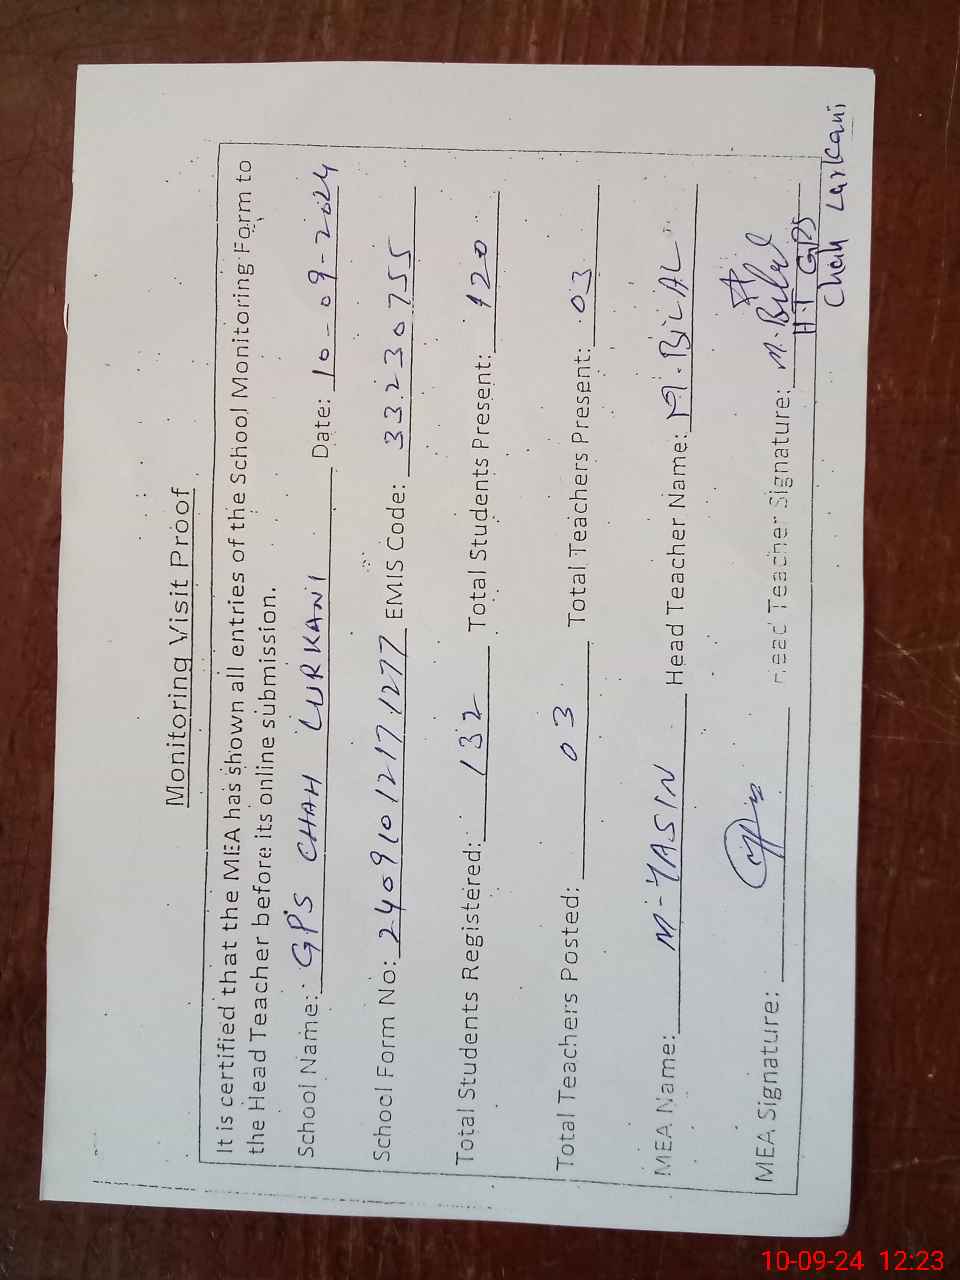 Monitoring Visit Proof
It is certified that the MEA has shown all entries of the School Monitoring Form to
the Head Teacher before its online submission.
School Name: GPS CHAH LURKANI Date: 10-09-2024
School Form No: 24091012171277 EMIS Code: 33230755
Total Students Registered: 132 Total Students Present: 120
Total Teachers Posted: 03 Total Teachers Present: 03
MEA Name: M-YASIN Head Teacher Name: M.BILAL
MEA Signature: Head Teacher Signature: M.Bilal
H.T GPS
Chah Larkani
10-09-24 12:23